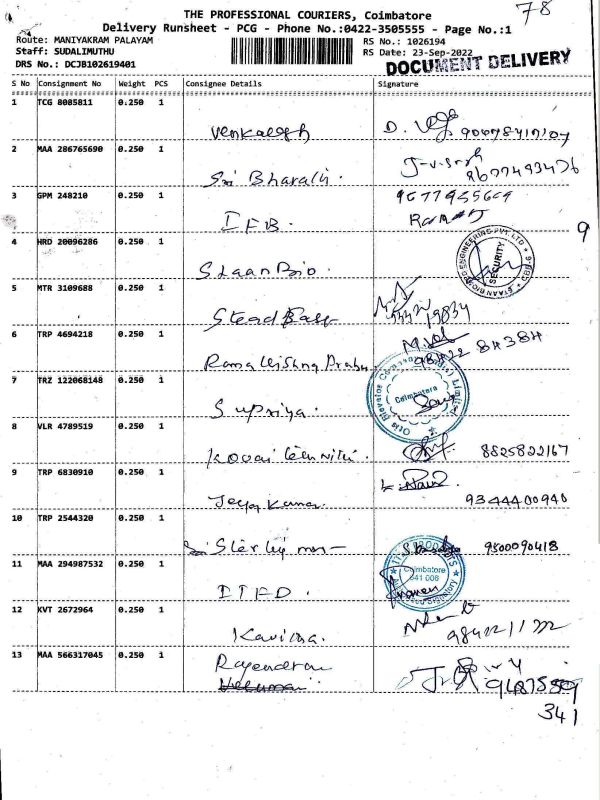 78
THE PROFESSIONAL COURIERS, Coimbatore
Delivery Runsheet - PCG - Phone No.:0422-3505555 - Page No.:1
Route: MANIYAKRAM PALAYAM
RS No.: 1026194
Staff: SUDALIMUTHU
RS Date: 23-Sep-2022
DRS No.: DCJB102619401
DOCUMENT DELIVERY
S No Consignment No Weight PCS Consignee Details Signature
1 TCG 8085811 0.250 1
Venkatesh
2 MAA 286765690 0.250 1
Sri Bharathi.
3 GPM 248210 0.250 1
IFB.
9
4 HRD 20096286 0.250 1
SECURITY
Staan Bio.
5 MTR 3109688 0.250 1
6 TRP 4694218 0.250 1
98422 84384
Ramakrishna Prabu.
7 TRZ 122068148 0.250 1
Coimbatore
Supriya.
8 VLR 4789519 0.250 1
Kovai 8825822167
9 TRP 6830910 0.250 1
Jeya Kumar. 9344400940
10 TRP 2544320 0.250 1
9500090418
11 MAA 294987532 0.250 1
Coimbatore
641 006
ITFD.
12 KVT 2672964 0.250 1
Kavitha.
13 MAA 566317045 0.250 1
Rajendran
9487559
341